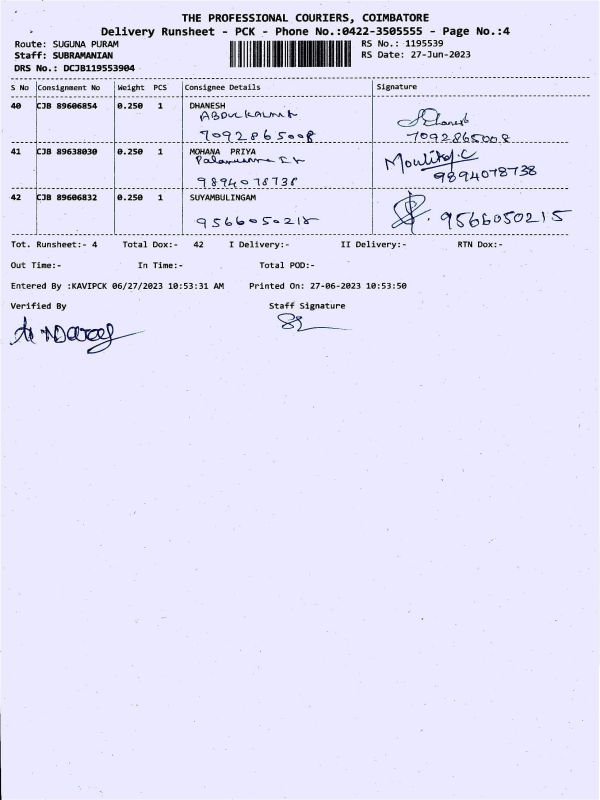 THE PROFESSIONAL COURIERS, COIMBATORE
Delivery Runsheet - PCK - Phone No.:0422-3505555 - Page No.:4
Route: SUGUNA PURAM RS No.: 1195539
Staff: SUBRAMANIAN RS Date: 27-Jun-2023
DRS No.: DCJB119553904
S No Consignment No Weight PCS Consignee Details Signature
40 CJB 89606854 0.250 1 DHANESH
ABDUL KALAM
7092865008 7092865008
41 CJB 89638030 0.250 1 MOHANA PRIYA
9894078738 9894078738
42 CJB 89606832 0.250 1 SUYAMBULINGAM
9566050215 9566050215
Tot. Runsheet:- 4 Total Dox:- 42 I Delivery:- II Delivery:- RTN Dox:-
Out Time:- In Time:- Total POD:-
Entered By :KAVIPCK 06/27/2023 10:53:31 AM Printed On: 27-06-2023 10:53:50
Verified By Staff Signature